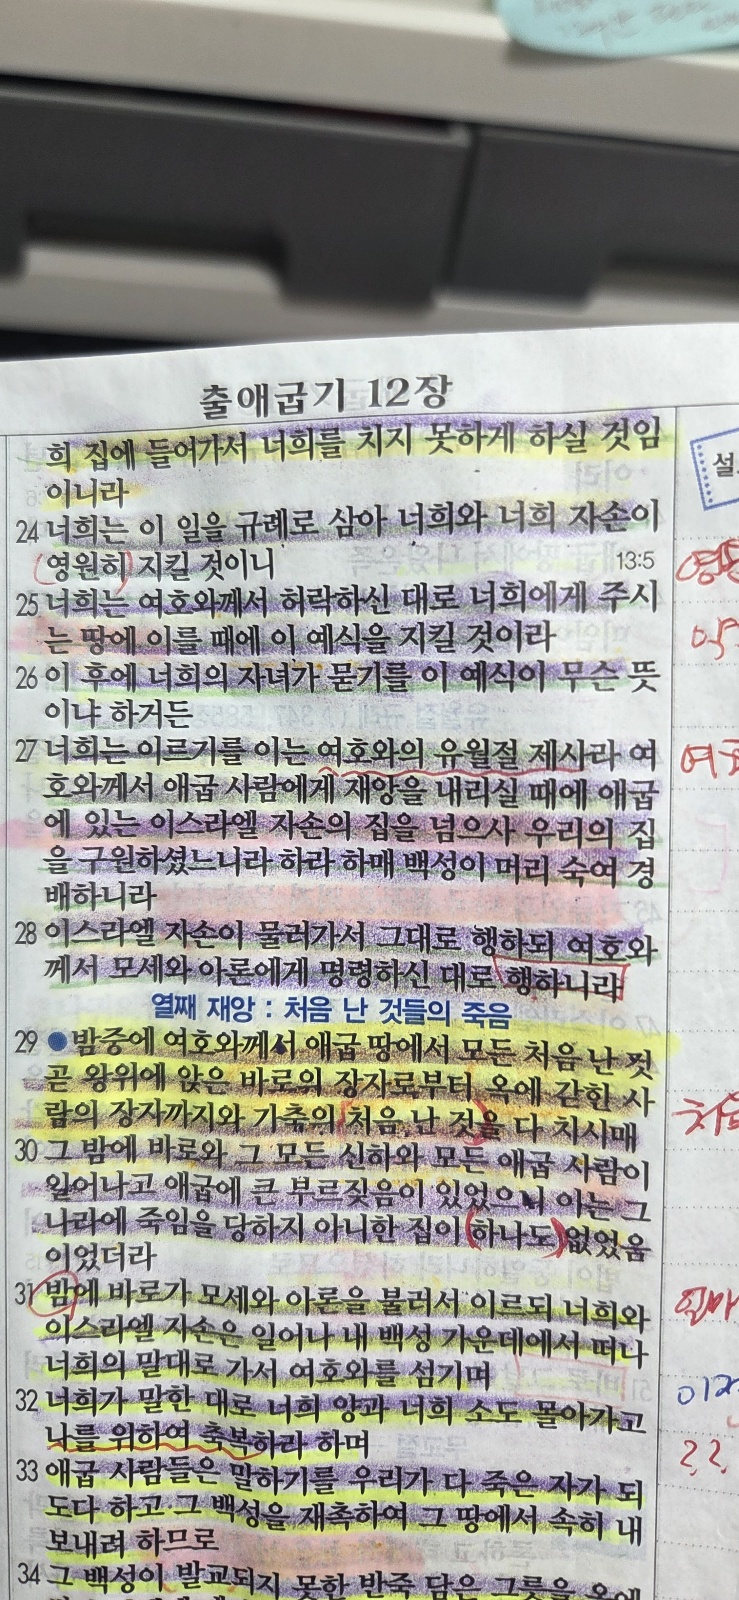 출애굽기 12장
희 집에 들어가서 너희를 치지 못하게 하실 것임
이니라
24 너희는 이 일을 규례로 삼아 너희와 너희 자손이
영원히 지킬 것이니 13:5
25 너희는 여호와께서 허락하신 대로 너희에게 주시
는 땅에 이를 때에 이 예식을 지킬 것이라
26 이 후에 너희의 자녀가 묻기를 이 예식이 무슨 뜻
이냐 하거든
27 너희는 이르기를 이는 여호와의 유월절 제사라 여
호와께서 애굽 사람에게 재앙을 내리실 때에 애굽
에 있는 이스라엘 자손의 집을 넘으사 우리의 집
을 구원하셨느니라 하라 하매 백성이 머리 숙여 경
배하니라
28 이스라엘 자손이 물러가서 그대로 행하되 여호와
께서 모세와 아론에게 명령하신 대로 행하니라
열째 재앙 : 처음 난 것들의 죽음
29 ●밤중에 여호와께서 애굽 땅에서 모든 처음 난 것
곧 왕위에 앉은 바로의 장자로부터 옥에 갇힌 사
람의 장자까지와 가축의 처음 난 것을 다 치시매
30 그 밤에 바로와 그 모든 신하와 모든 애굽 사람이
일어나고 애굽에 큰 부르짖음이 있었으니 이는 그
나라에 죽임을 당하지 아니한 집이 하나도 없었음
이었더라
31 밤에 바로가 모세와 아론을 불러서 이르되 너희와
이스라엘 자손은 일어나 내 백성 가운데에서 떠나
너희의 말대로 가서 여호와를 섬기며
32 너희가 말한 대로 너희 양과 너희 소도 몰아가고
나를 위하여 축복하라 하며
33 애굽 사람들은 말하기를 우리가 다 죽은 자가 되
도다 하고 그 백성을 재촉하여 그 땅에서 속히 내
보내려 하므로
34 그 백성이 발교되지 못한 반죽 담은 그릇을 옷에
설
처음